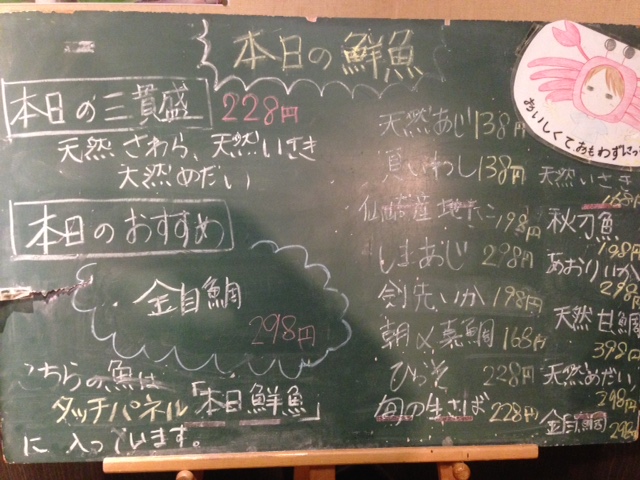 本日の鮮魚
本日の三貫盛 228円
天然さわら、天然いさき
天然めだい
本日のおすすめ
金目鯛
298円
こちらの魚は
タッチパネル「本日鮮魚」
に入っています。
天然あじ138円
真いわし138円
仙崎産地だこ198円
しまあじ 298円
剣先いか198円
朝〆真鯛168円
ひらそ 228円
旬の生さば228円
おいしくておもわずにっ
天然いさき
168円
秋刀魚
198円
あおりいか
298円
天然甘鯛
398円
天然めだい
298円
金目鯛
298円